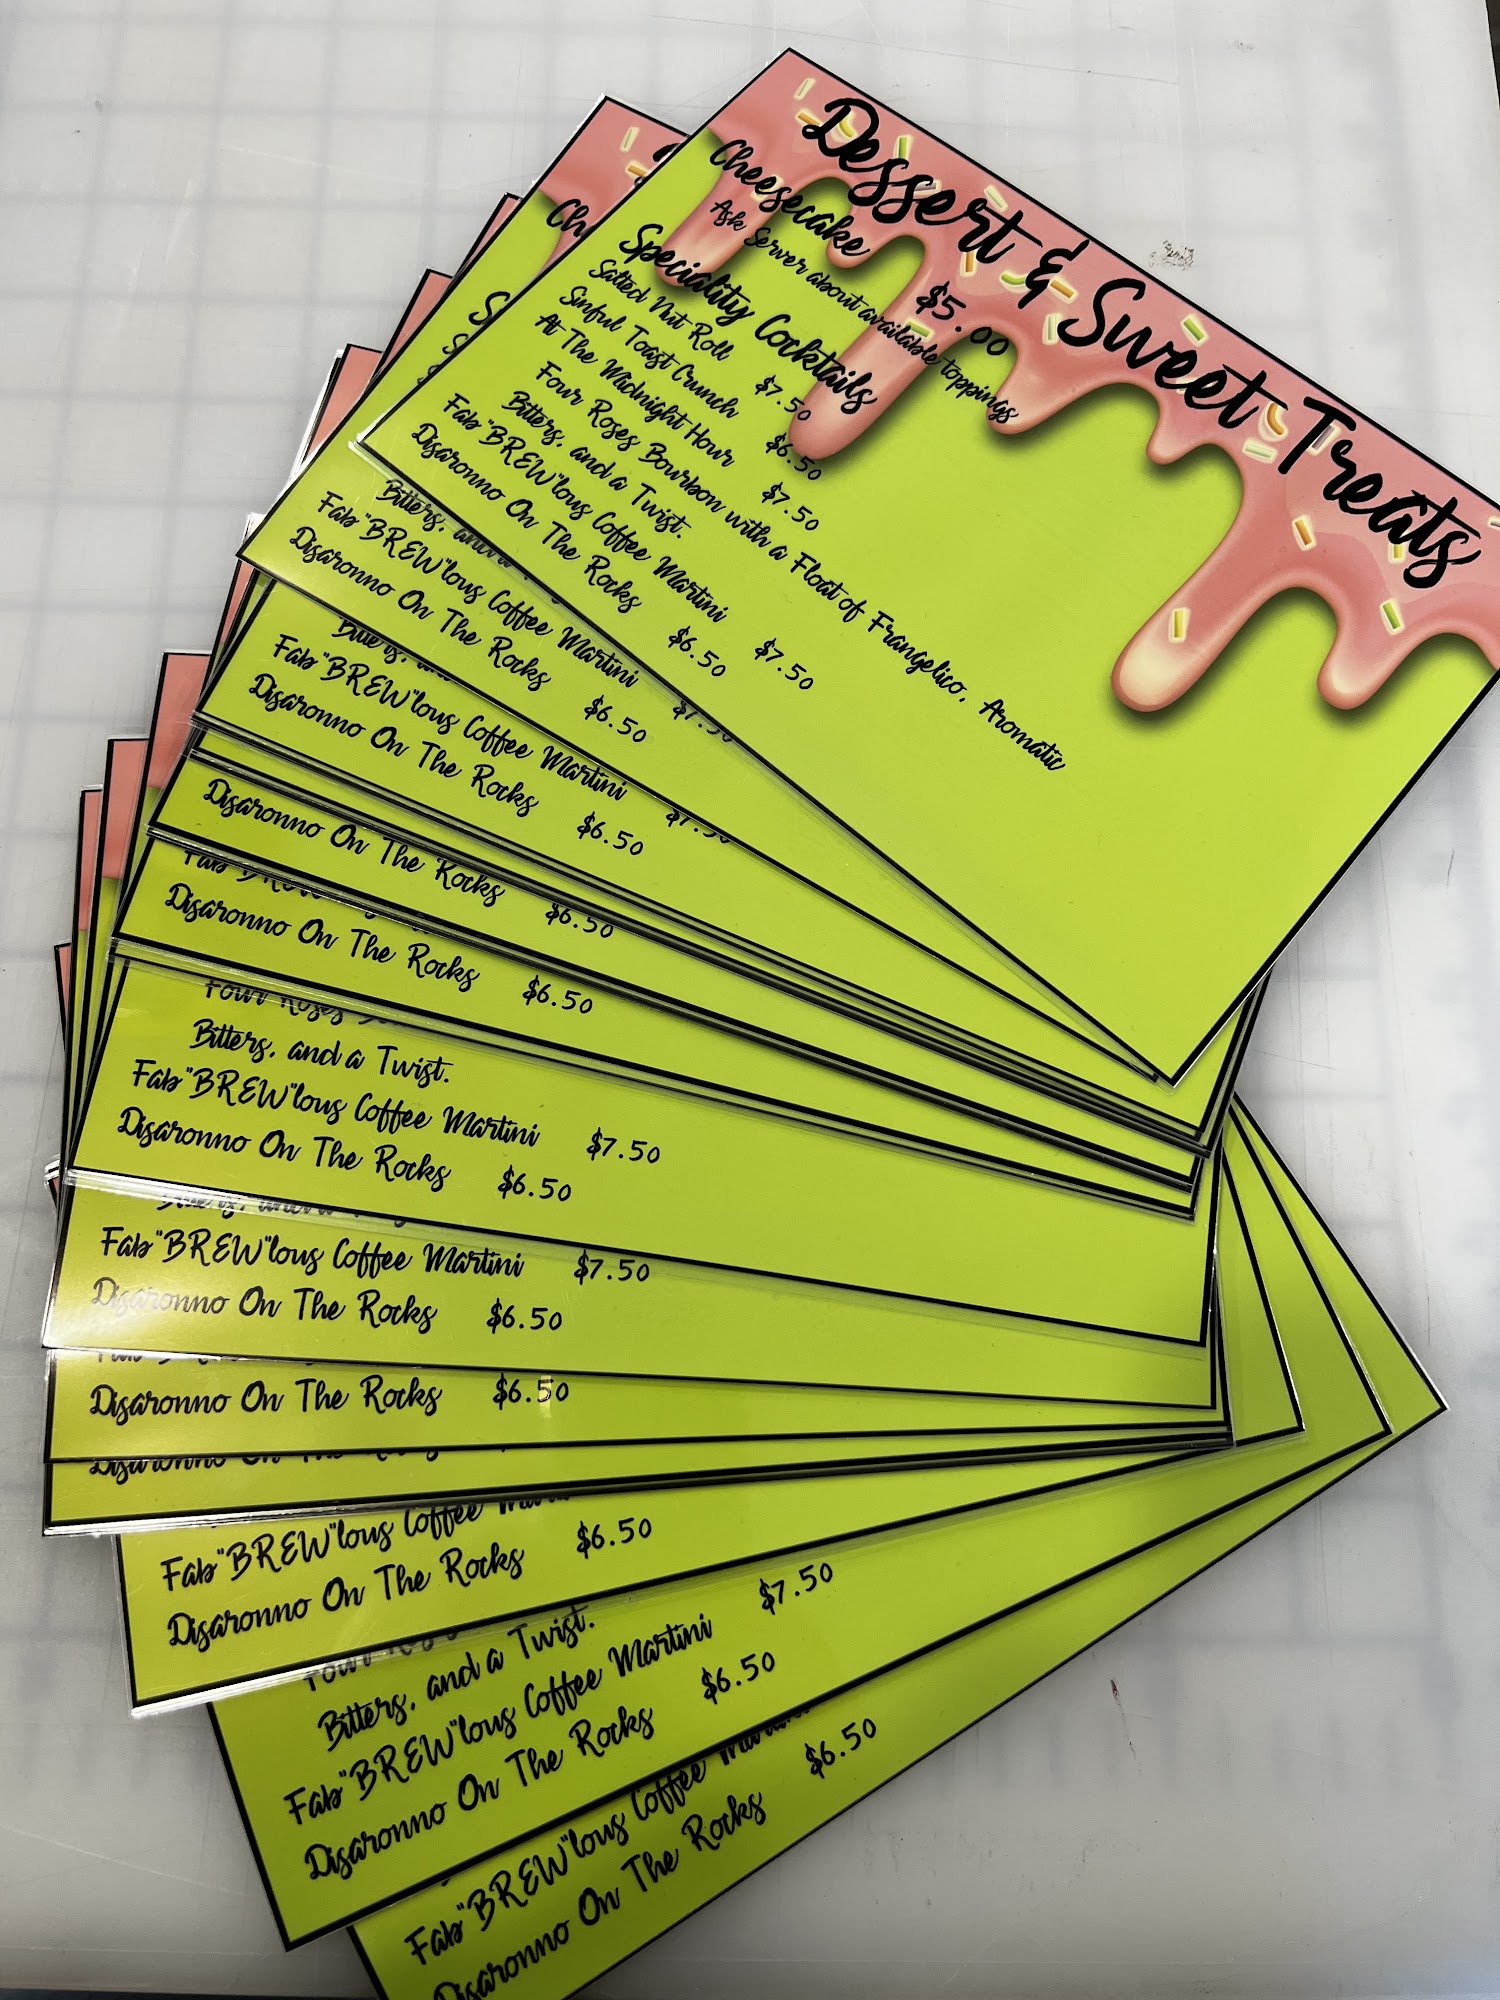 Dessert & Sweet Treats
Cheesecake $5.00
Ask Server about available toppings
Speciality Cocktails
Salted Nut Roll $7.50
Sinful Toast Crunch $6.50
At The Midnight Hour $7.50
Four Roses Bourbon with a Float of Frangelico, Aromatic
Bitters, and a Twist.
Fab"BREW"lous Coffee Martini $7.50
Disaronno On The Rocks $6.50
Bitters, and
Fab"BREW"lous Coffee Martini $7.50
Disaronno On The Rocks $6.50
Fab"BREW"lous Coffee Martini $7.50
Disaronno On The Rocks $6.50
Disaronno On The Rocks $6.50
Disaronno On The Rocks $6.50
Four Roses
Bitters, and a Twist.
Fab"BREW"lous Coffee Martini $7.50
Disaronno On The Rocks $6.50
Fab"BREW"lous Coffee Martini $7.50
Disaronno On The Rocks $6.50
Disaronno On The Rocks $6.50
Fab"BREW"lous Coffee
Disaronno On The Rocks $6.50
Bitters, and a Twist.
Fab"BREW"lous Coffee Martini $7.50
Disaronno On The Rocks $6.50
Fab"BREW"lous Coffee
Disaronno On The Rocks $6.50